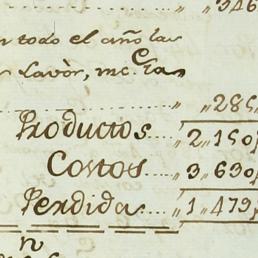 346
n todo el año las
Lavòr, mc. Cras
" " 285
Productos ... " 2 " 150
Costos ... " 3 " 630
Perdida ... " 1 " 479
n